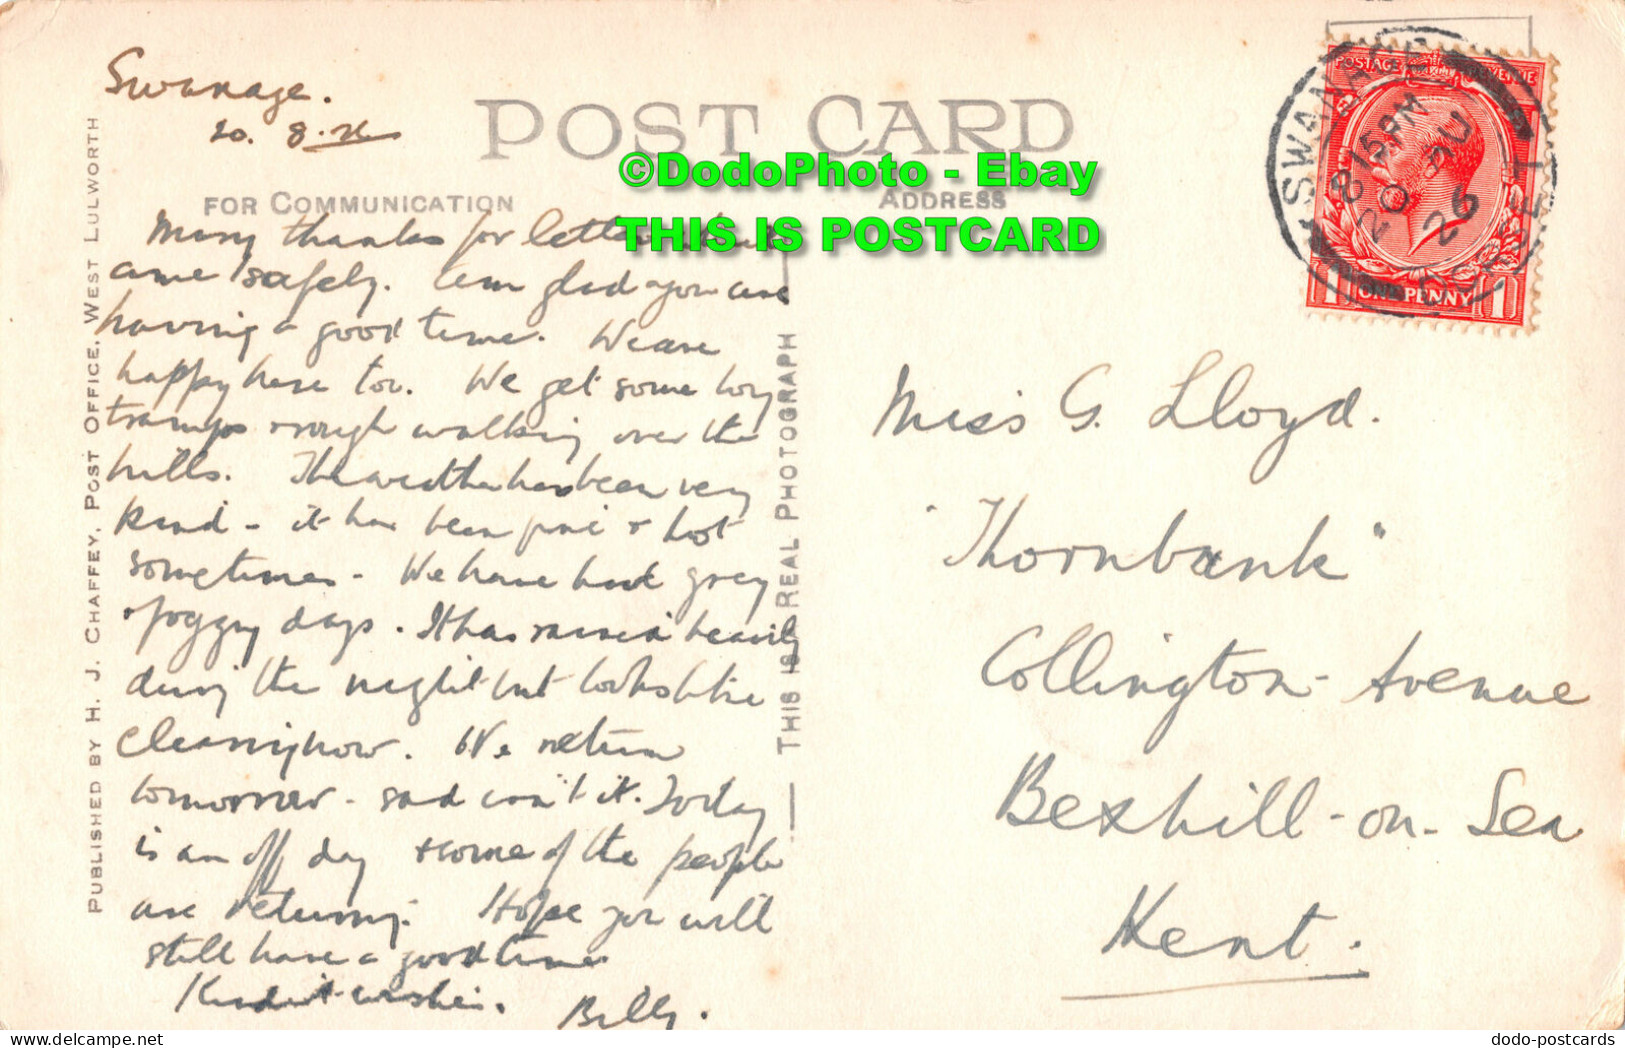 Swanage.
20. 8. 26
POST CARD
©DodoPhoto - Ebay
THIS IS POSTCARD
FOR COMMUNICATION
ADDRESS
Many thanks for letter
came safely. Am glad you are
having a good time. We are
happy here too. We get some long
tramps & rough walking over the
hills. The weather has been very
kind - it has been fine & hot
sometimes - We have had grey
& foggy days. It has rained heavily
during the night but looks like
clearing now. We return
tomorrow - sad isn't it. Today
is an off day & some of the people
are returning. Hope you will
still have a good time
Kindest wishes. Billy.
PUBLISHED BY H. J. CHAFFEY, POST OFFICE, WEST LULWORTH
THIS IS REAL PHOTOGRAPH
POSTAGE REVENUE
1 ONE PENNY 1
SWANAGE
8 15 PM
20 AU
26
DORSET
Miss G. Lloyd.
"Thornbank"
Collington Avenue
Bexhill-on-Sea
Kent.
dodo-postcards